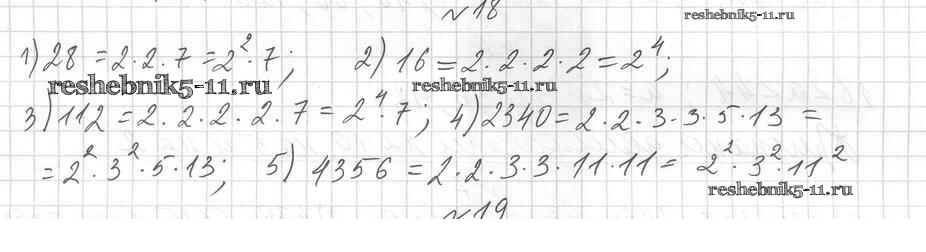 №18
reshebnik5-11.ru
1) 28 = 2·2·7 = 2²·7; 2) 16 = 2·2·2·2 = 2⁴;
reshebnik5-11.ru reshebnik5-11.ru
3) 112 = 2·2·2·2·7 = 2⁴·7; 4) 2340 = 2·2·3·3·5·13 =
= 2²·3²·5·13; 5) 4356 = 2·2·3·3·11·11 = 2²·3²·11²
reshebnik5-11.ru
№19